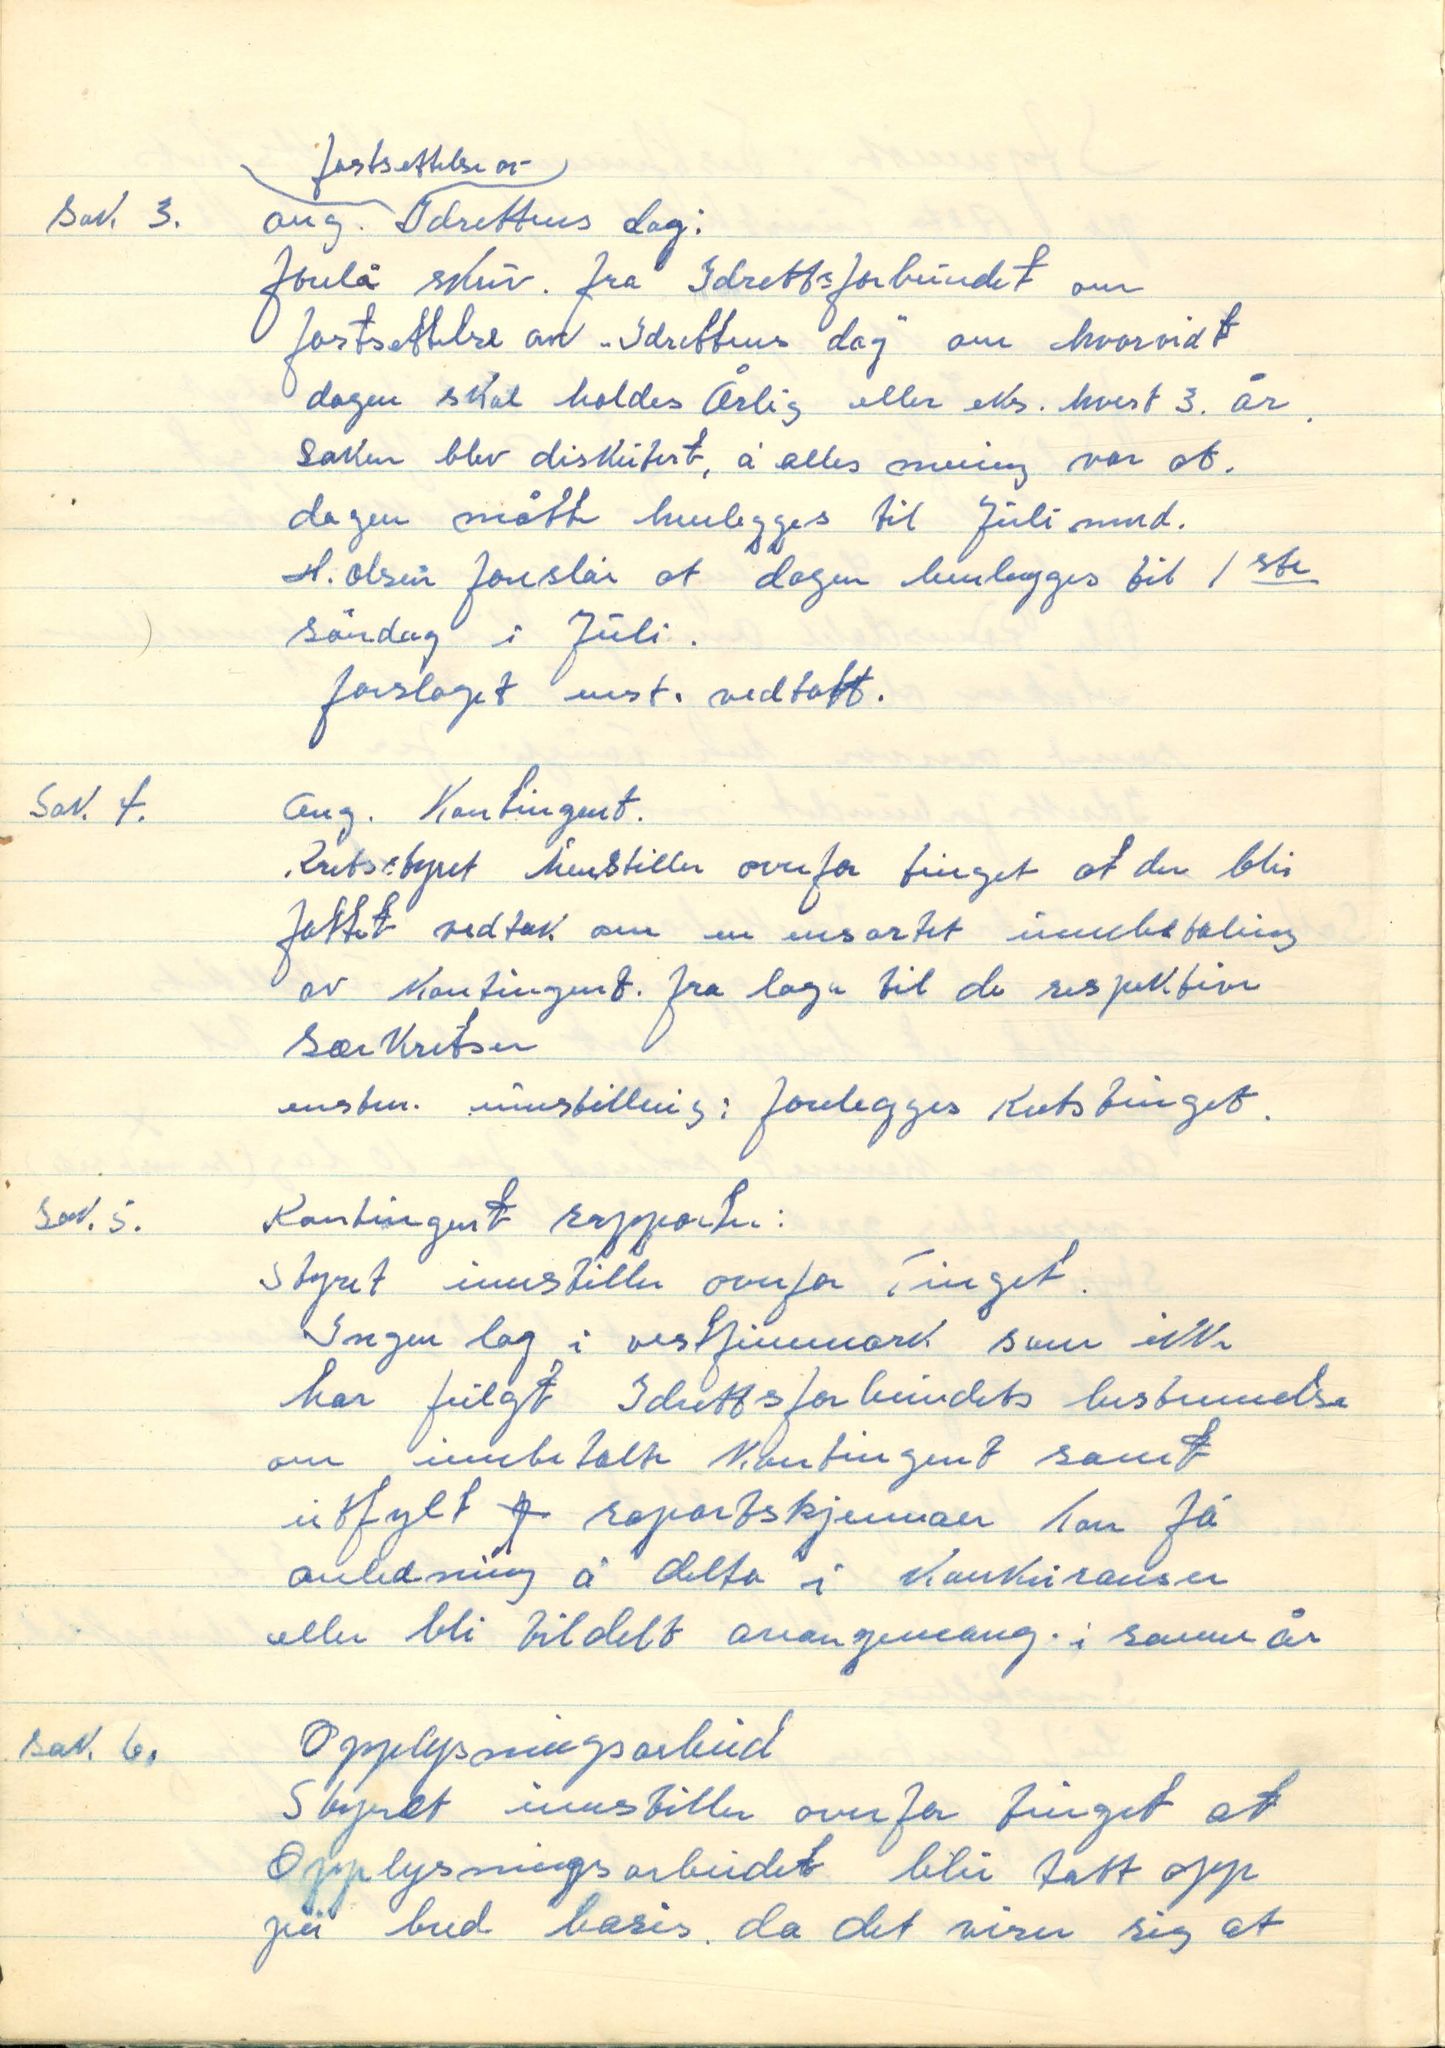 fastsettelse av
Sak. 3. ang. Idrettens dag:
forelå skriv. fra Idrettsforbundet om
fastsettelse av "Idrettens dag" om hvorvidt
dagen skal holdes Årlig eller eks. hvert 3. år.
Saken blev diskutert, å alles mening var at.
dagen måtte henlegges til Juli mnd.
H. Olsen foreslår at dagen henlegges til 1 ste
søndag i Juli.
forslaget enst. vedtatt.
Sak. 4. Ang. Kontingent.
Kretsstyret henstiller overfor tinget at der blir
fattet vedtak om en ensartet innbetaling
av Kontingent. fra laga til de respektive
Særkretser
enstem. innstilling: forelegges Kretstinget.
Sak. 5. Kontingent rapporter:
Styret innstiller overfor Tinget.
Ingen lag i vestfinnmark som ikke
har fulgt Idrettsforbundets bestemmelse
om innbetalte Kontingent samt
utfylt raportskjemaer kan få
anledning å delta i Konkuranser
eller bli tildelt arrangemang. i samme år
Sak. 6. Opplysningsarbeid
Styret innstiller overfor tinget at
Opplysningsarbeidet blir tatt opp
på bred basis. da det viser sig at